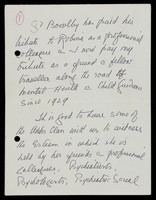 1
Dr Bowlby has paid his
tribute to Robina as a professional
colleague & I now pay my
tribute as a friend & fellow
traveller along the road of
Mental Health & Child Guidance
since 1929.
It is good to have some of
the Addis Clan with us to witness
the esteem in which she was
held by her friends & professional
colleagues, Psychiatrists,
Psychologists, Psychiatric Social